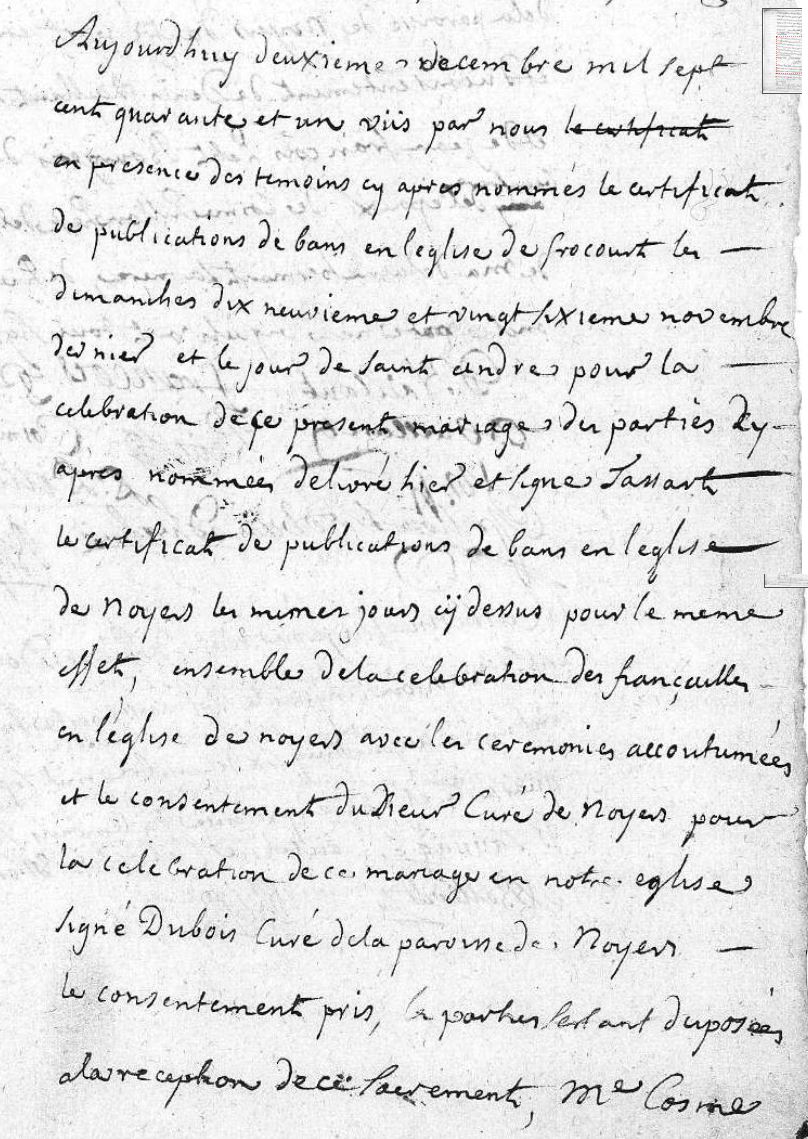 Aujourdhuy deuxieme decembre mil sept
cent quarante et un viis par nous le certificat
en presence des temoins cy apres nommés le certificat
de publications de bans en leglise de frocourt les
dimanches dix neuvieme et vingt sixieme novembre
dernier et le jour de saint andre pour la
celebration de ce present mariage des parties cy
après nommées delivré hier et signe Tassart
le certificat de publications de bans en leglise
de Noyers les memes jours cÿ dessus pour le meme
effet, ensemble dela celebration des françailles
en l'église de noyers avec les ceremonies accoutumées
et le consentement du Sieur Curé de Noyers pour
la celebration de ce mariage en notre eglise
signé Dubois Curé dela paroisse de Noyers
le consentement pris, les parties sestant disposées
ala reception de ce sacrement, Me Cosme